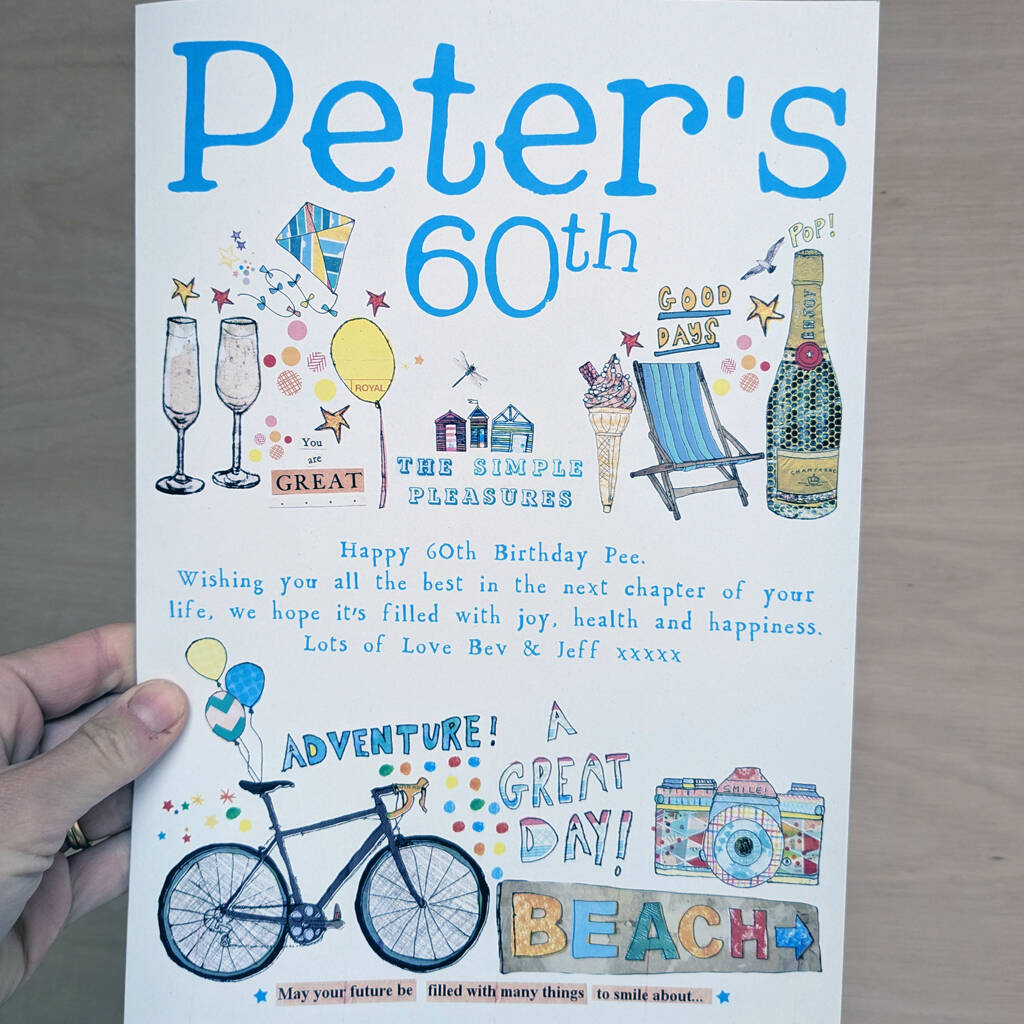 Peter's
60th
POP!
GOOD
DAYS
ENJOY
ROYAL
You
are
GREAT
THE SIMPLE
PLEASURES
CHAMPAGNE
Happy 60th Birthday Pee.
Wishing you all the best in the next chapter of your
life, we hope it's filled with joy, health and happiness.
Lots of Love Bev & Jeff xxxxx
ADVENTURE!
A
GREAT
DAY!
SMILE!
BEACH
May your future be filled with many things to smile about...